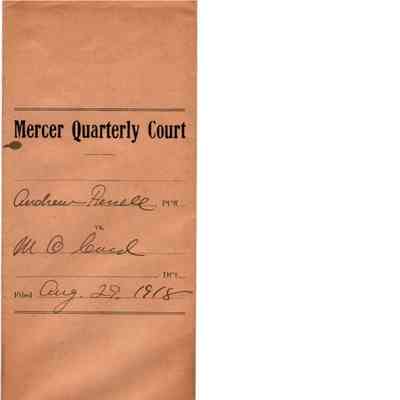 Mercer Quarterly Court
Andrew Pennell PL'FF.
vs.
M O Curd
DF'T.
Filed Aug. 29. 1918